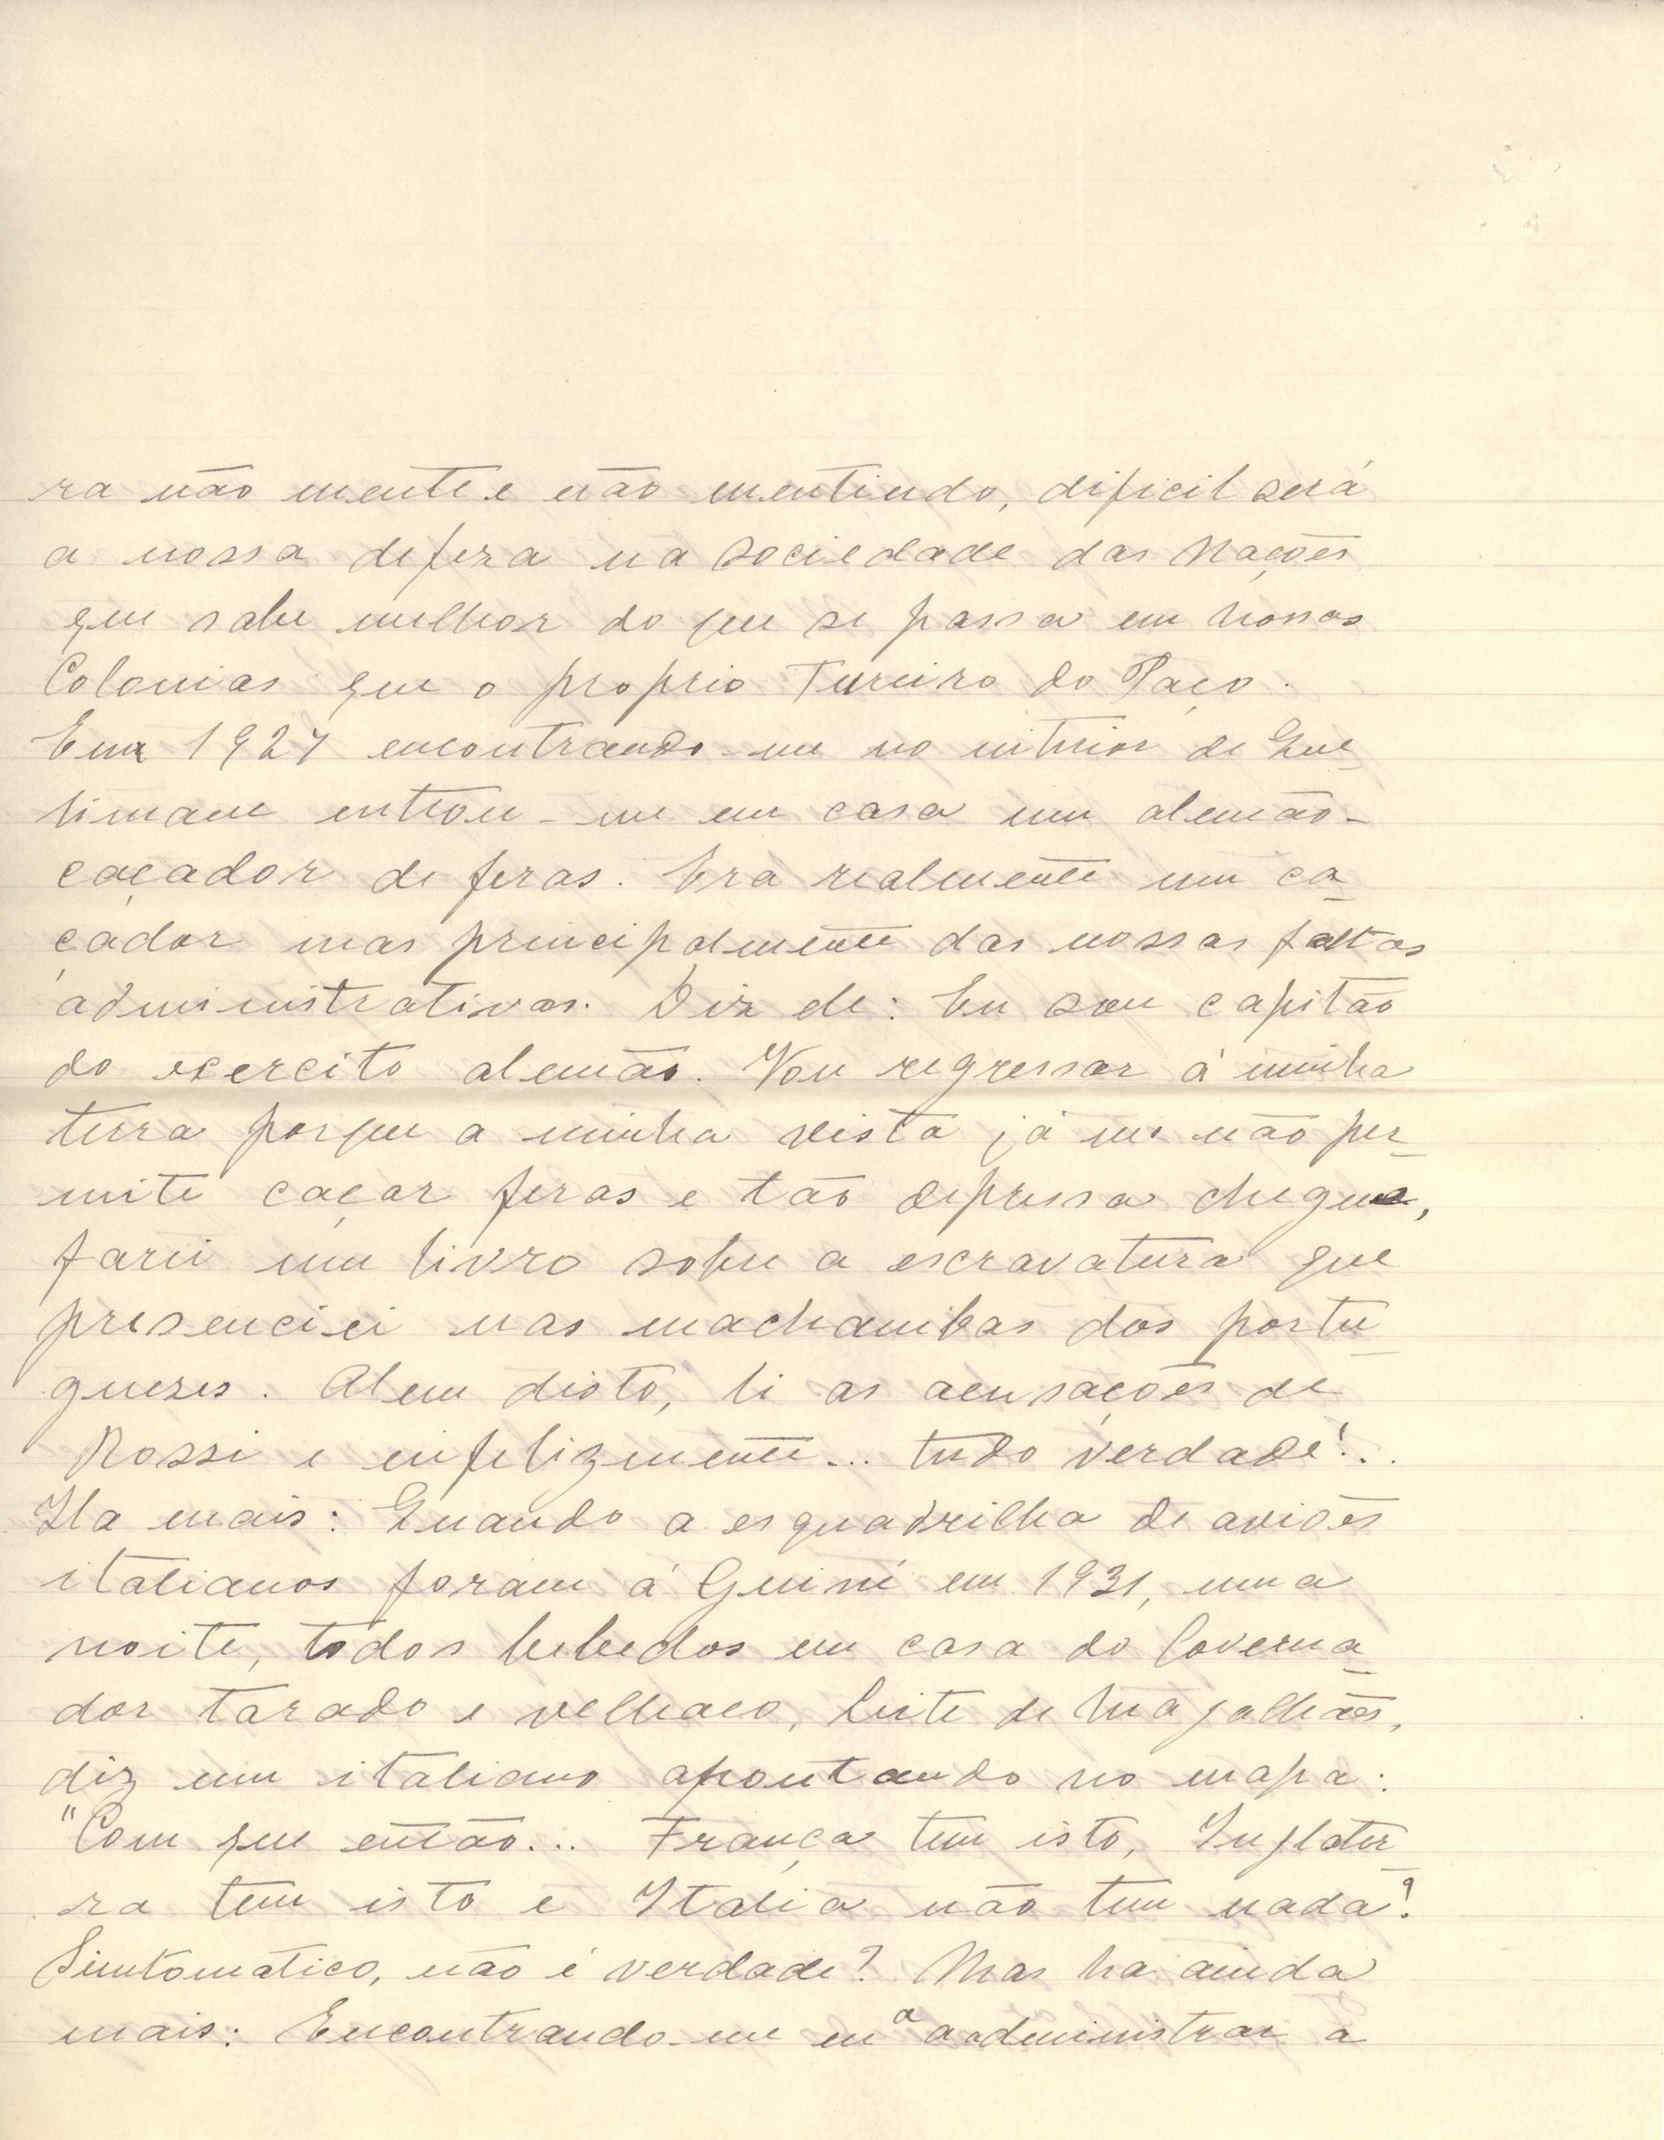 ra não mente e não mentindo, dificil será
a nossa defeza na Sociedade das Nações
que sabe melhor do que se passa em nossas
Colonias que o proprio Terreiro do Paço.
Em 1927 encontrando-me no interior de Que-
limane entrou-me em casa um alemão-
caçador de feras. Era realmente um ca-
çador mas principalmente das nossas faltas
administrativas. Diz ele: Eu sou capitão
do exercito alemão. Vou regressar á minha
terra porque a minha vista já me não per-
mite caçar feras e tão depressa chegue,
farei um livro sobre a escravatura que
presenciei nas machambas dos portu-
guezes. Alem disto, li as acusações de
Rossi e infelizmente... tudo verdade!..
Ha mais: Quando a esquadrilha de aviões
italianos foram á Guiné em 1931, uma
noite, todos bebedos em casa do Governa-
dor tarado e velhaco, Leite de Magalhães,
diz um italiano apontando no mapa:
"Com que então... França tem isto, Inglater-
ra tem isto e Italia não tem nada?!
Simtomatico, não é verdade? Mas ha ainda
mais: Encontrando-me eu a administrar a